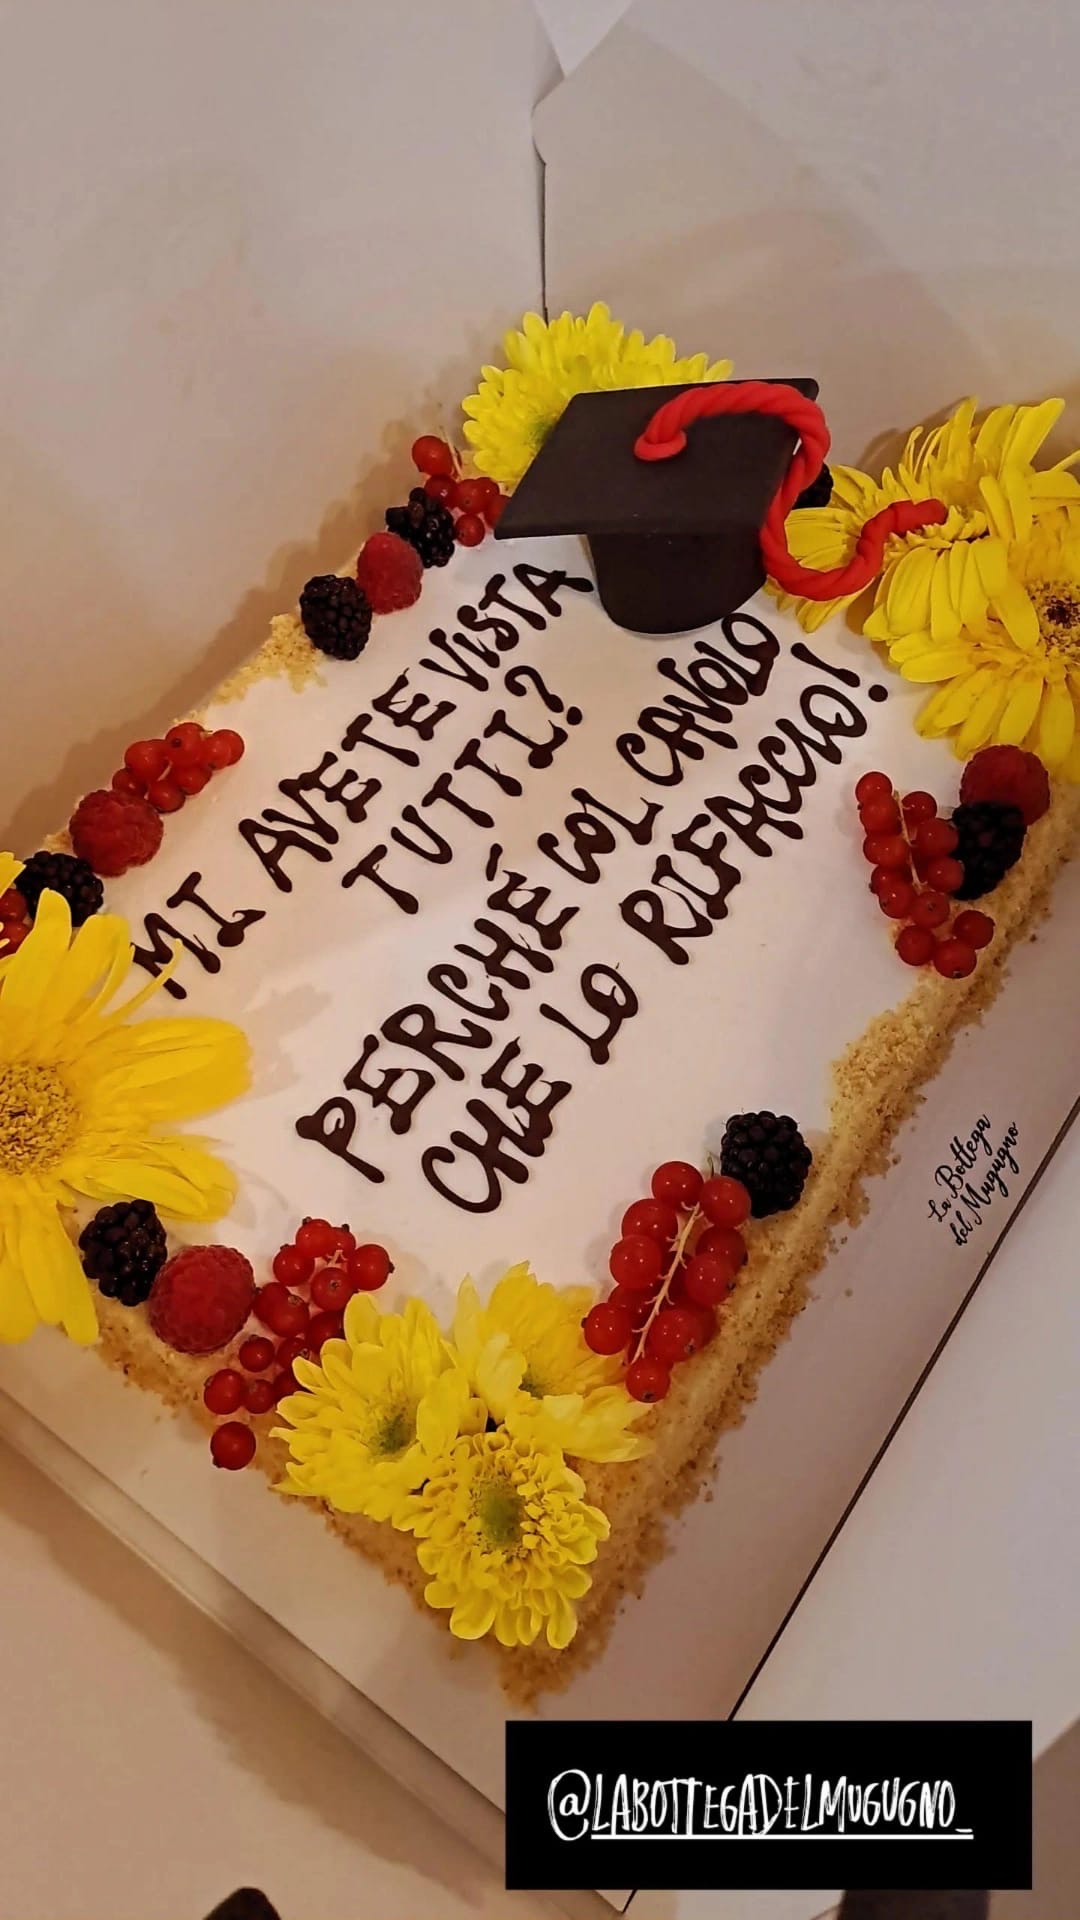 MI AVETE VISTA
TUTTI?
PERCHÈ COL CAVOLO
CHE LO RIFACCIO!
La Bottega
del Mugugno
@LABOTTEGADELMUGUGNO_